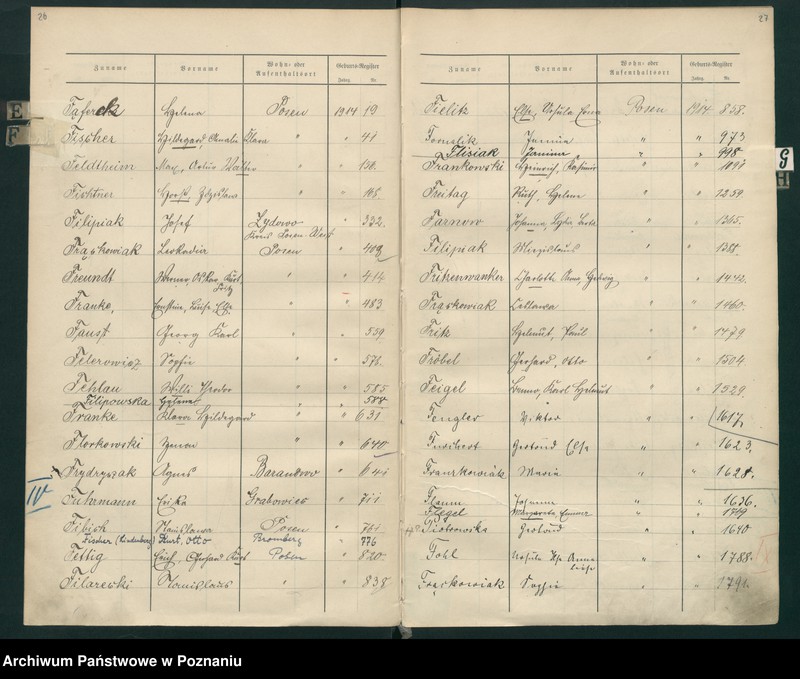 26
Zuname Vorname Wohn- oder Aufenthaltsort Geburts-Register
Jahrg. Nr.
E
F
Helena Posen 1914 19
Fischer Hildegard Amalie Klara " " 41
Feldtheim Max, Walther " " 150.
Fichtner Horst " " 165.
Filipiak Josef Lydowo " 332
Kreis Posen-West
Frąckowiak Leokadia Posen " 409
Freundt Werner, Oskar, Karl, Fritz " " 414
Franke, Ernstine, Luise, Else " " 483
Faust Georg Karl " " 559.
Federowicz Sophie " " 576.
Fehlau Willi Theodor " " 585
Filipowska Helena " " 588
Franke Klara Hildegard " " 631.
Florkowski " " 640
Frydryszak Agnes Baranowo " 641
IV
Fuhrmann Erika Grabowiec " 711
Fibich Stanislawa Posen " 761
Fischer (Lindenberg) Kurt, Otto Bromberg " 776
Fettig Erich, Gerhard Kurt Posen " 820.
Filarecki Stanislaus " " 838
27
Zuname Vorname Wohn- oder Aufenthaltsort Geburts-Register
Jahrg. Nr.
G
H
Fielik Else, Ursula Posen 1914 858.
Fomelik Janina " " 973
Flisiak Janina " " 998
Frankowski Heinrich, Kasimir " " 1091
Freitag Ruth, Helene " " 1259.
Farnow Johanna, Lydia " " 1315.
Filipiak Miecislaus " " 1388.
Charlotte Anna, Hedwig " " 1442.
Frąckowiak " " 1460.
Frisk Helmut, Paul " " 1479
Fröbel Gerhard, Otto " " 1504
Feigel Bruno, Karl Helmut " " 1529.
Fengler Viktor " " 1617.
Gertrud Else " " 1623.
Franzkowiak Maria " " 1628.
Flamm Johanna " " 1636.
Flegel Margarete " " 1719
Piotrowska Gertrud " " 1640
Fohl Ursula Ilse Anneliese " " 1788.
Frąckowiak Sophie " " 1791.
Archiwum Państwowe w Poznaniu